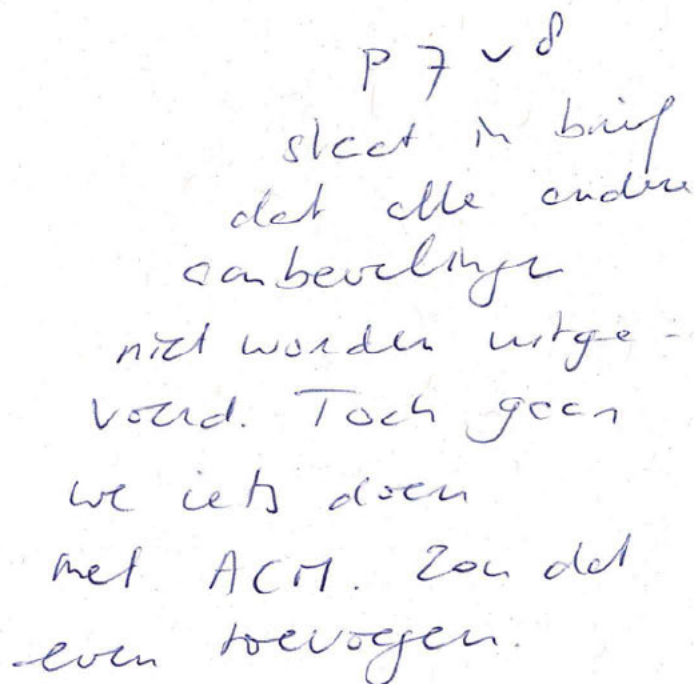 P 7 v 8
staat in brief
dat alle andere
aanbevelinge
niet worden uitge-
voerd. Toch gaan
we iets doen
met ACM. Zou dat
even toevoegen.